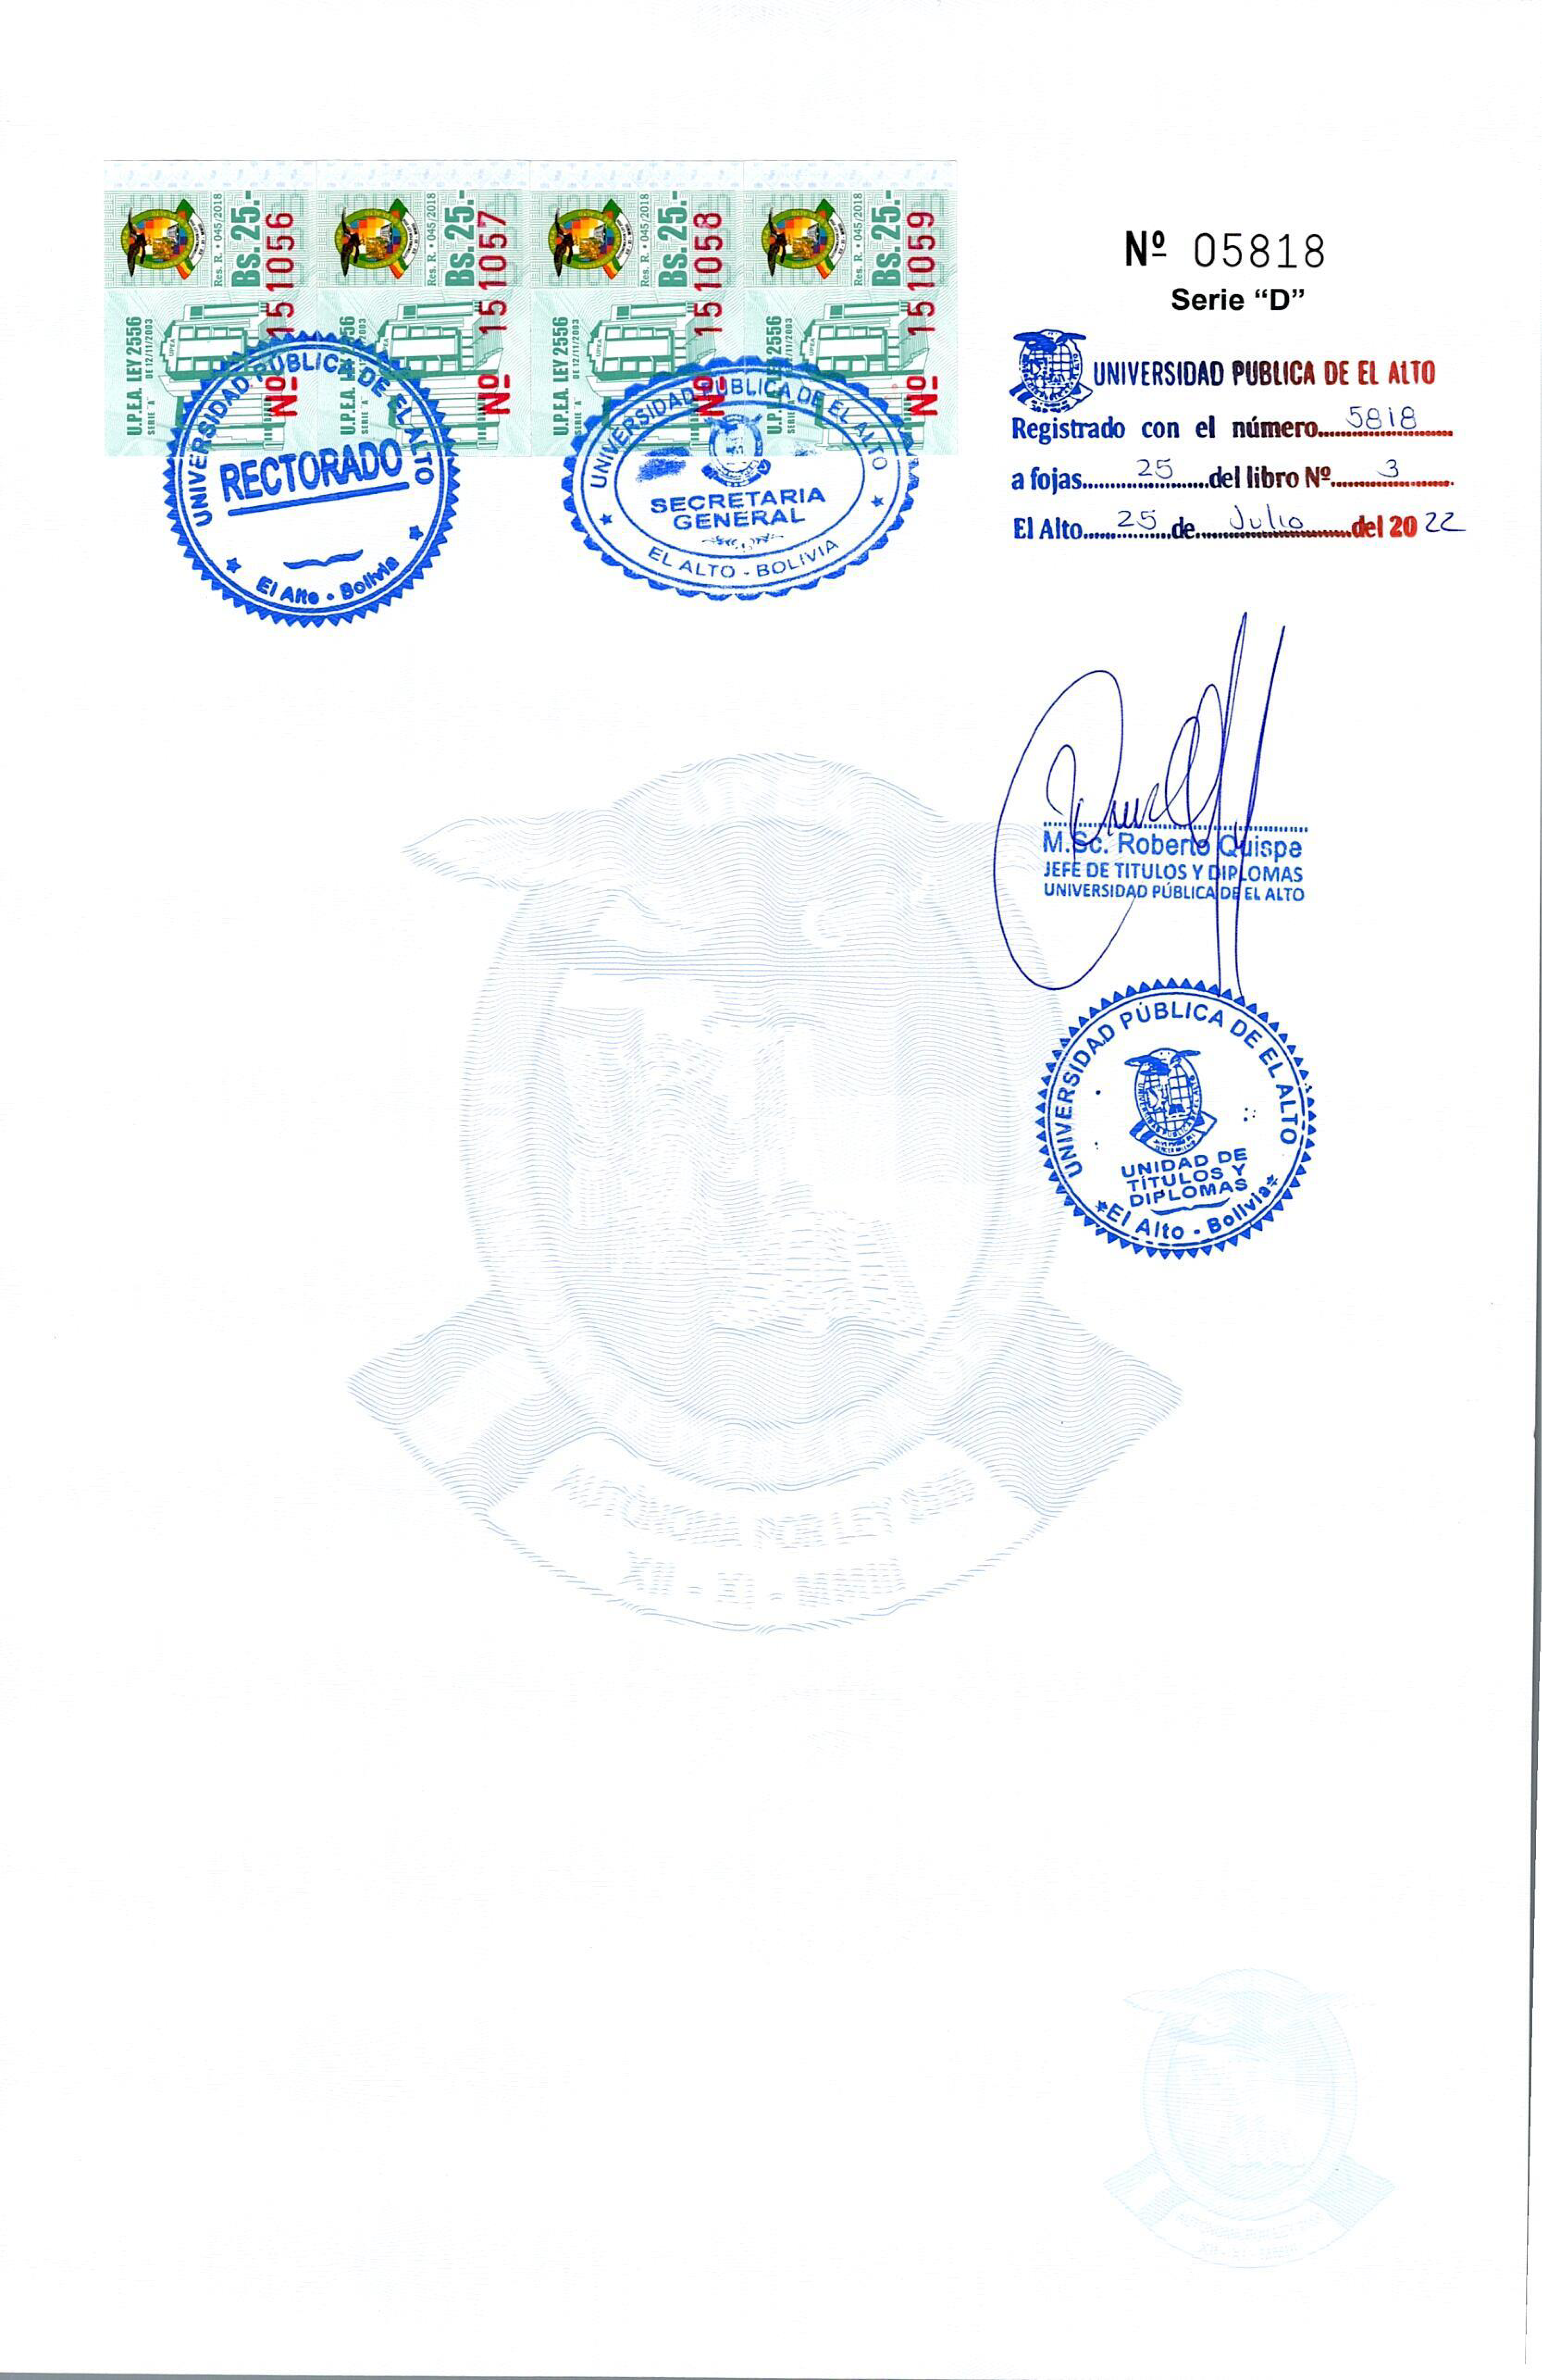 U.P.E.A. LEY 2556
SERIE "A" DE 12/11/2003
Res. R. • 045/2018
Bs. 25.-
Nº 151056
U.P.E.A. LEY 2556
SERIE "A" DE 12/11/2003
Res. R. • 045/2018
Bs. 25.-
Nº 151057
U.P.E.A. LEY 2556
SERIE "A" DE 12/11/2003
Res. R. • 045/2018
Bs. 25.-
Nº 151058
U.P.E.A. LEY 2556
SERIE "A" DE 12/11/2003
Res. R. • 045/2018
Bs. 25.-
Nº 151059
UNIVERSIDAD PÚBLICA DE EL ALTO
RECTORADO
El Alto - Bolivia
UNIVERSIDAD PUBLICA DE EL ALTO
SECRETARIA
GENERAL
EL ALTO - BOLIVIA
Nº 05818
Serie “D”
UNIVERSIDAD PUBLICA DE EL ALTO
Registrado con el número 5818
a fojas 25 del libro Nº 3
El Alto 25 de Julio del 2022
M.Sc. Roberto Quispe
JEFE DE TITULOS Y DIPLOMAS
UNIVERSIDAD PÚBLICA DE EL ALTO
UNIVERSIDAD PÚBLICA DE EL ALTO
UNIDAD DE
TÍTULOS Y
DIPLOMAS
El Alto - Bolivia
AUTÓNOMA POR LEY 2556
XII - XI - MMIII